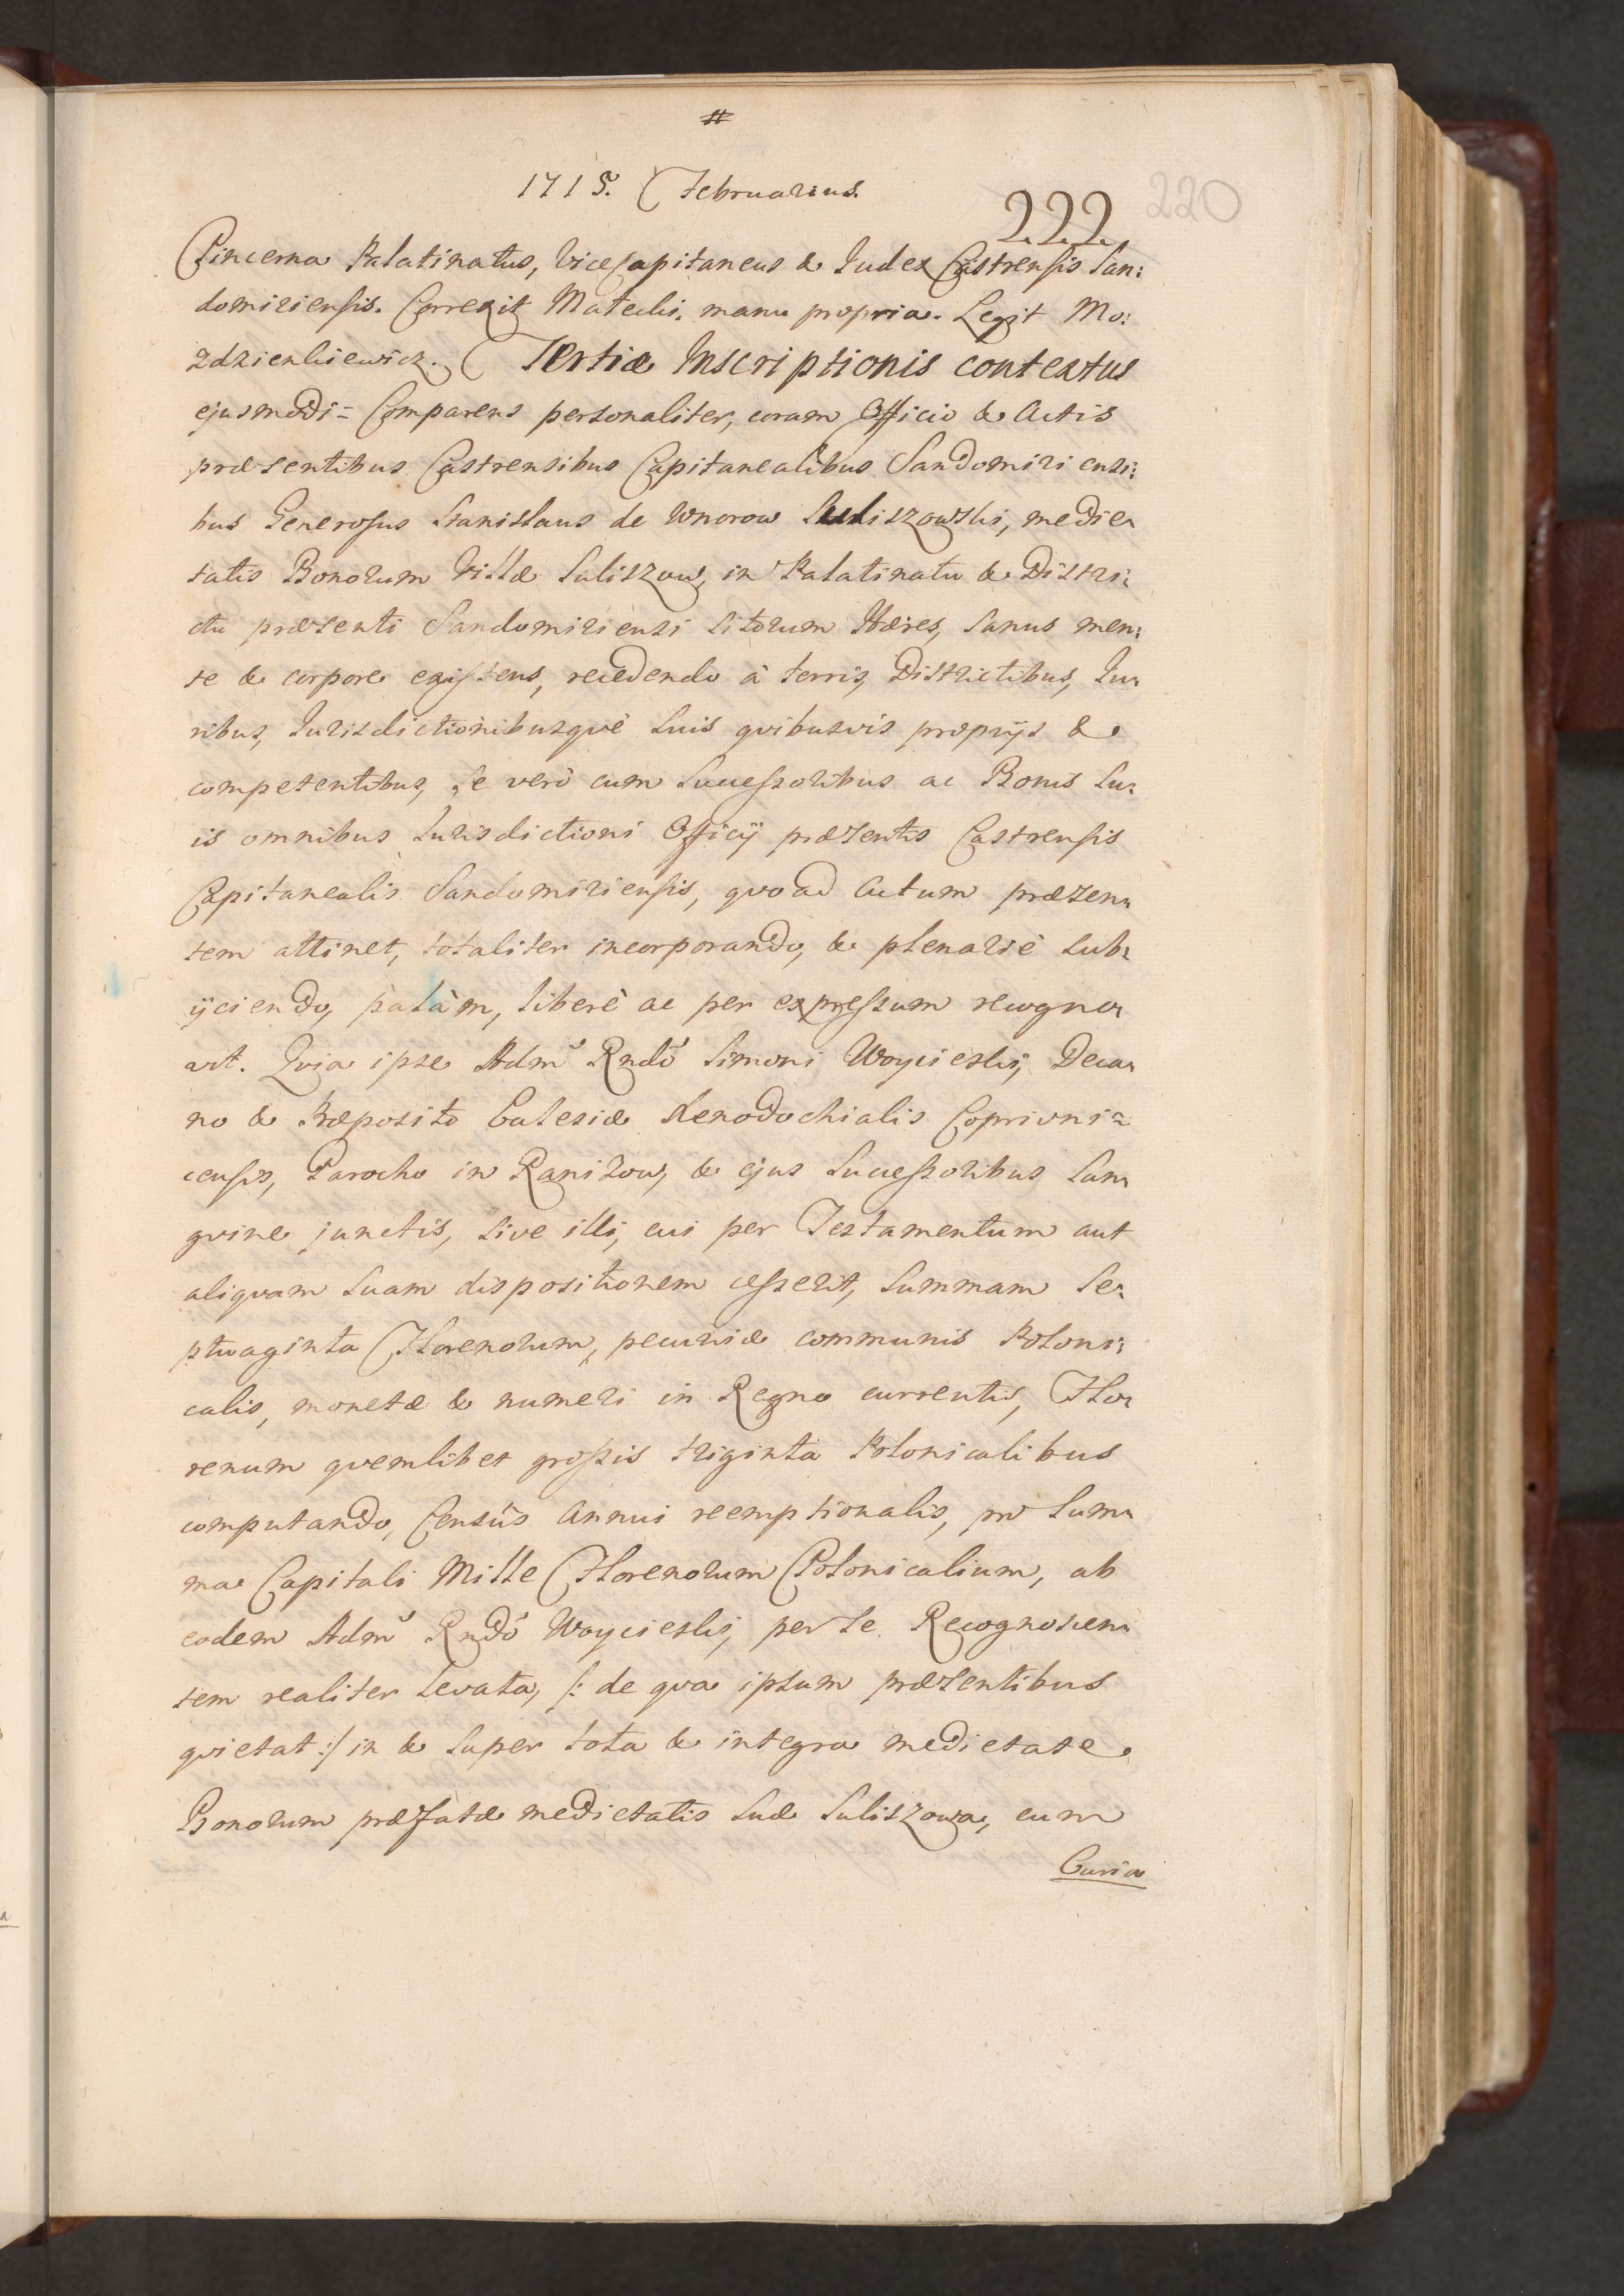 #
1715. Februarius.
222 220
Pincerna Palatinatus, ViceCapitaneus & Judex Castrensis San:
domiriensis. Correxit Matecki. manu propria. Legit Mo:
zdzienkiewicz. Tertiæ Inscriptionis contextus
ejusmodi= Comparens personaliter, coram Officio & Actis
præsentibus Castrensibus Capitanealibus Sandomiriensi:
bus Generosus Stanislaus de Wnorow Suliszowski, medie:
tatis Bonorum Villæ Suliszow, in Palatinatu & Distri:
ctu præsenti Sandomiriensi sitorum Hæres, sanus men:
te & corpore existens, recedendo à terris, Districtibus, Ju:
ribus, Jurisdictionibusque suis quibusvis proprijs &
competentibus, se verò cum Successoribus ac Bonis su:
is omnibus Jurisdictioni Officij præsentis Castrensis
Capitanealis Sandomiriensis, quoad Actum præsen:
tem attinet, totaliter incorporando, & plenariè sub:
ijciendo, palàm, liberè ac per expressum recogno:
vit. Quia ipse Admo Rndo Simoni Woycieski, Deca:
no & Præposito Ecclesiæ Xenodochialis Coprivni=
censis, Parocho in Ranizow, & ejus Successoribus San:
gvine junctis, sive illi, cui per Testamentum aut
aliquam suam dispositionem cesserit, Summam Se:
ptuaginta Florenorum, pecuniæ communis Poloni:
calis, monetæ & numeri in Regno currentis, Flo:
renum quemlibet grossis triginta Polonicalibus
computando, Censûs Annui reemptionalis, pro Sum:
ma Capitali Mille Florenorum Polonicalium, ab
eodem Admo Rndo Woycieski, per se Recognoscen:
tem realiter levata, /: de qua ipsum præsentibus
quietat :/ in & super tota & integra medietate
Bonorum præfatæ medietatis suæ Suliszowa, cum
Curia